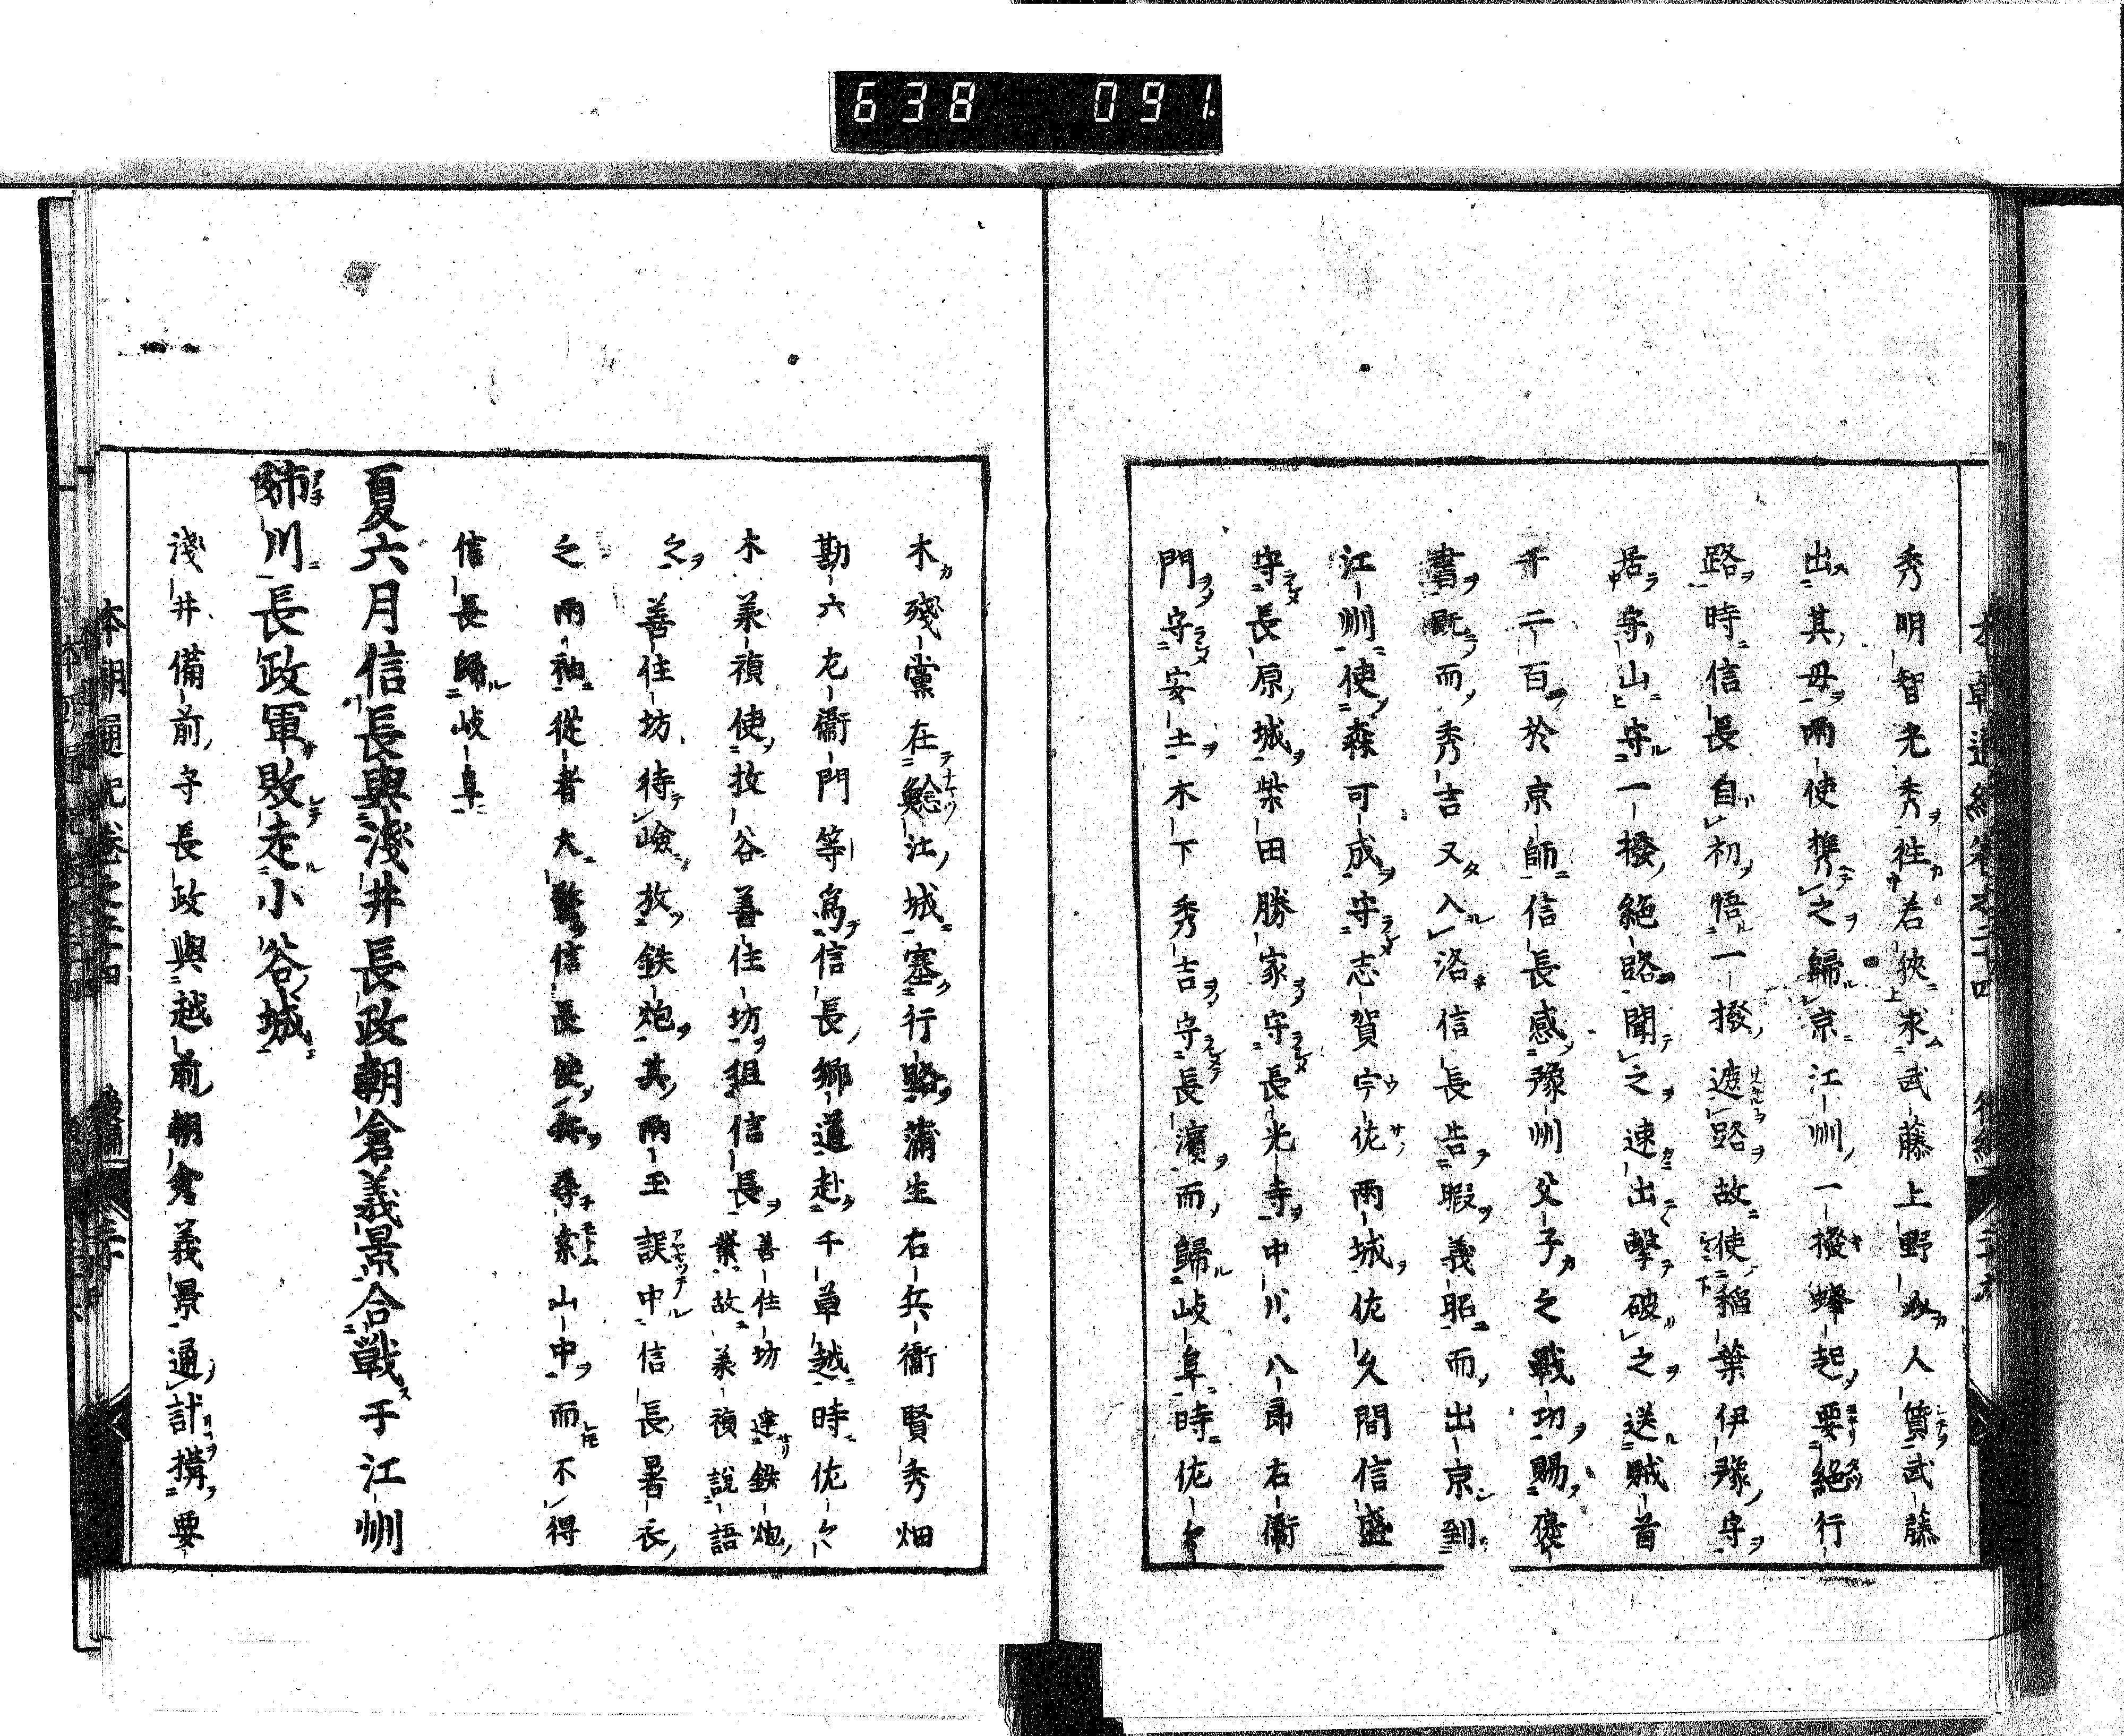 638 091
秀明智光秀往若狹求武藤上野人質武藤
出其母兩使携之歸京江州一揆蜂起要絕行
路時信長自初悟一揆遮路故使稻葉伊豫守
居守山守一揆絕路聞之速出擊破之送賊首
千二百於京師信長感豫州父子之戰功賜褒
書既而秀吉又入洛信長告暇義昭而出京到
江州使森可成守志賀宇佐兩城佐久間信盛
守長原城柴田勝家守長光寺中川八郎右衞
門守安土木下秀吉守長濱而歸岐阜時佐々
木殘黨在鯰江城塞行路蒲生右兵衞賢秀畑
勘六左衞門等爲信長鄉導赴千草越時佐々
木義禎使杉谷善住坊狙信長善住坊達鉄炮
業故義禎說語
之善住坊待嶮放鉄炮其兩玉誤中信長暑衣
之兩袖從者大驚信長使尋索山中而不得
信長歸岐阜
夏六月信長與淺井長政朝倉義景合戰于江州
姉川長政軍敗走小谷城
淺井備前守長政與越前朝倉義景通計搆要
本朝通紀卷之二十四 後編